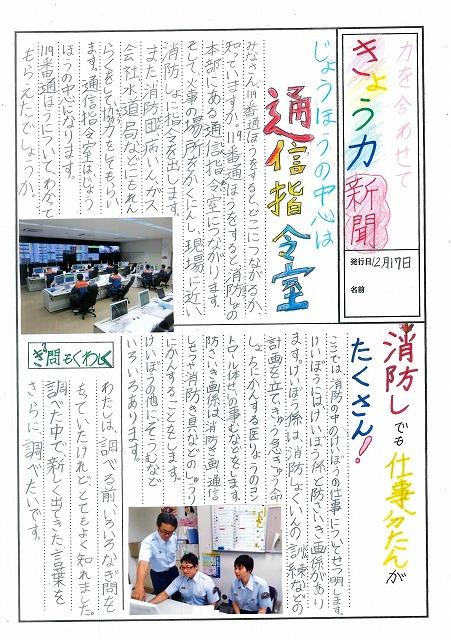 力を合わせて
きょう力
新聞
発行日12月17日
名前
じょうほうの中心は
通信指令室
みなさん119番通ほうをするとどこにつながるか
知っていますか。119番通ほうをすると消防しょの
本部にある通信指令室につながります。
そして火事の場所をかくにんし、現場に近い
消防しょに指令を出します。
また消防団、病いん、ガス
会社、水道局などにもれん
らくをして協力をしてもらい
ます。通信指令室はじょう
ほうの中心になります。
119番通ほうについてわかって
もらえたでしょうか。
消防しでも仕事分たんが
たくさん!
ここでは消防の中のけいぼうの仕事についてせつ明します。
けいぼうにはけいぼう係と防さいき画係があり
ます。けいぼう係は消防しょくいんの訓練などの
計画を立てきゅう急きゅう命
しょちにかんする医りょうのコン
トロールせいの事むなどをします。
防さいき画係は消防き画、通信
しせつや消防き具などのしゅうり
にかんすることをします。
けいぼうの他にそうむなど
いろいろあります。
ぎ問もくわしく
わたしは、調べる前いろいろなぎ問を
もっていたけれどとてもよく知れました。
調べた中で新しく出てきた言葉を
さらに調べたいです。